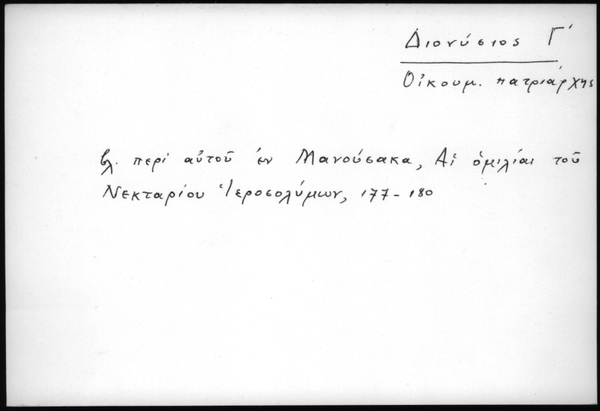 Διονύσιος Γ΄
Οἰκουμ. πατριάρχης
βλ. περὶ αὐτοῦ ἐν Μανούσακα, Αἱ ὁμιλίαι τοῦ
Νεκταρίου Ἱεροσολύμων, 177-180